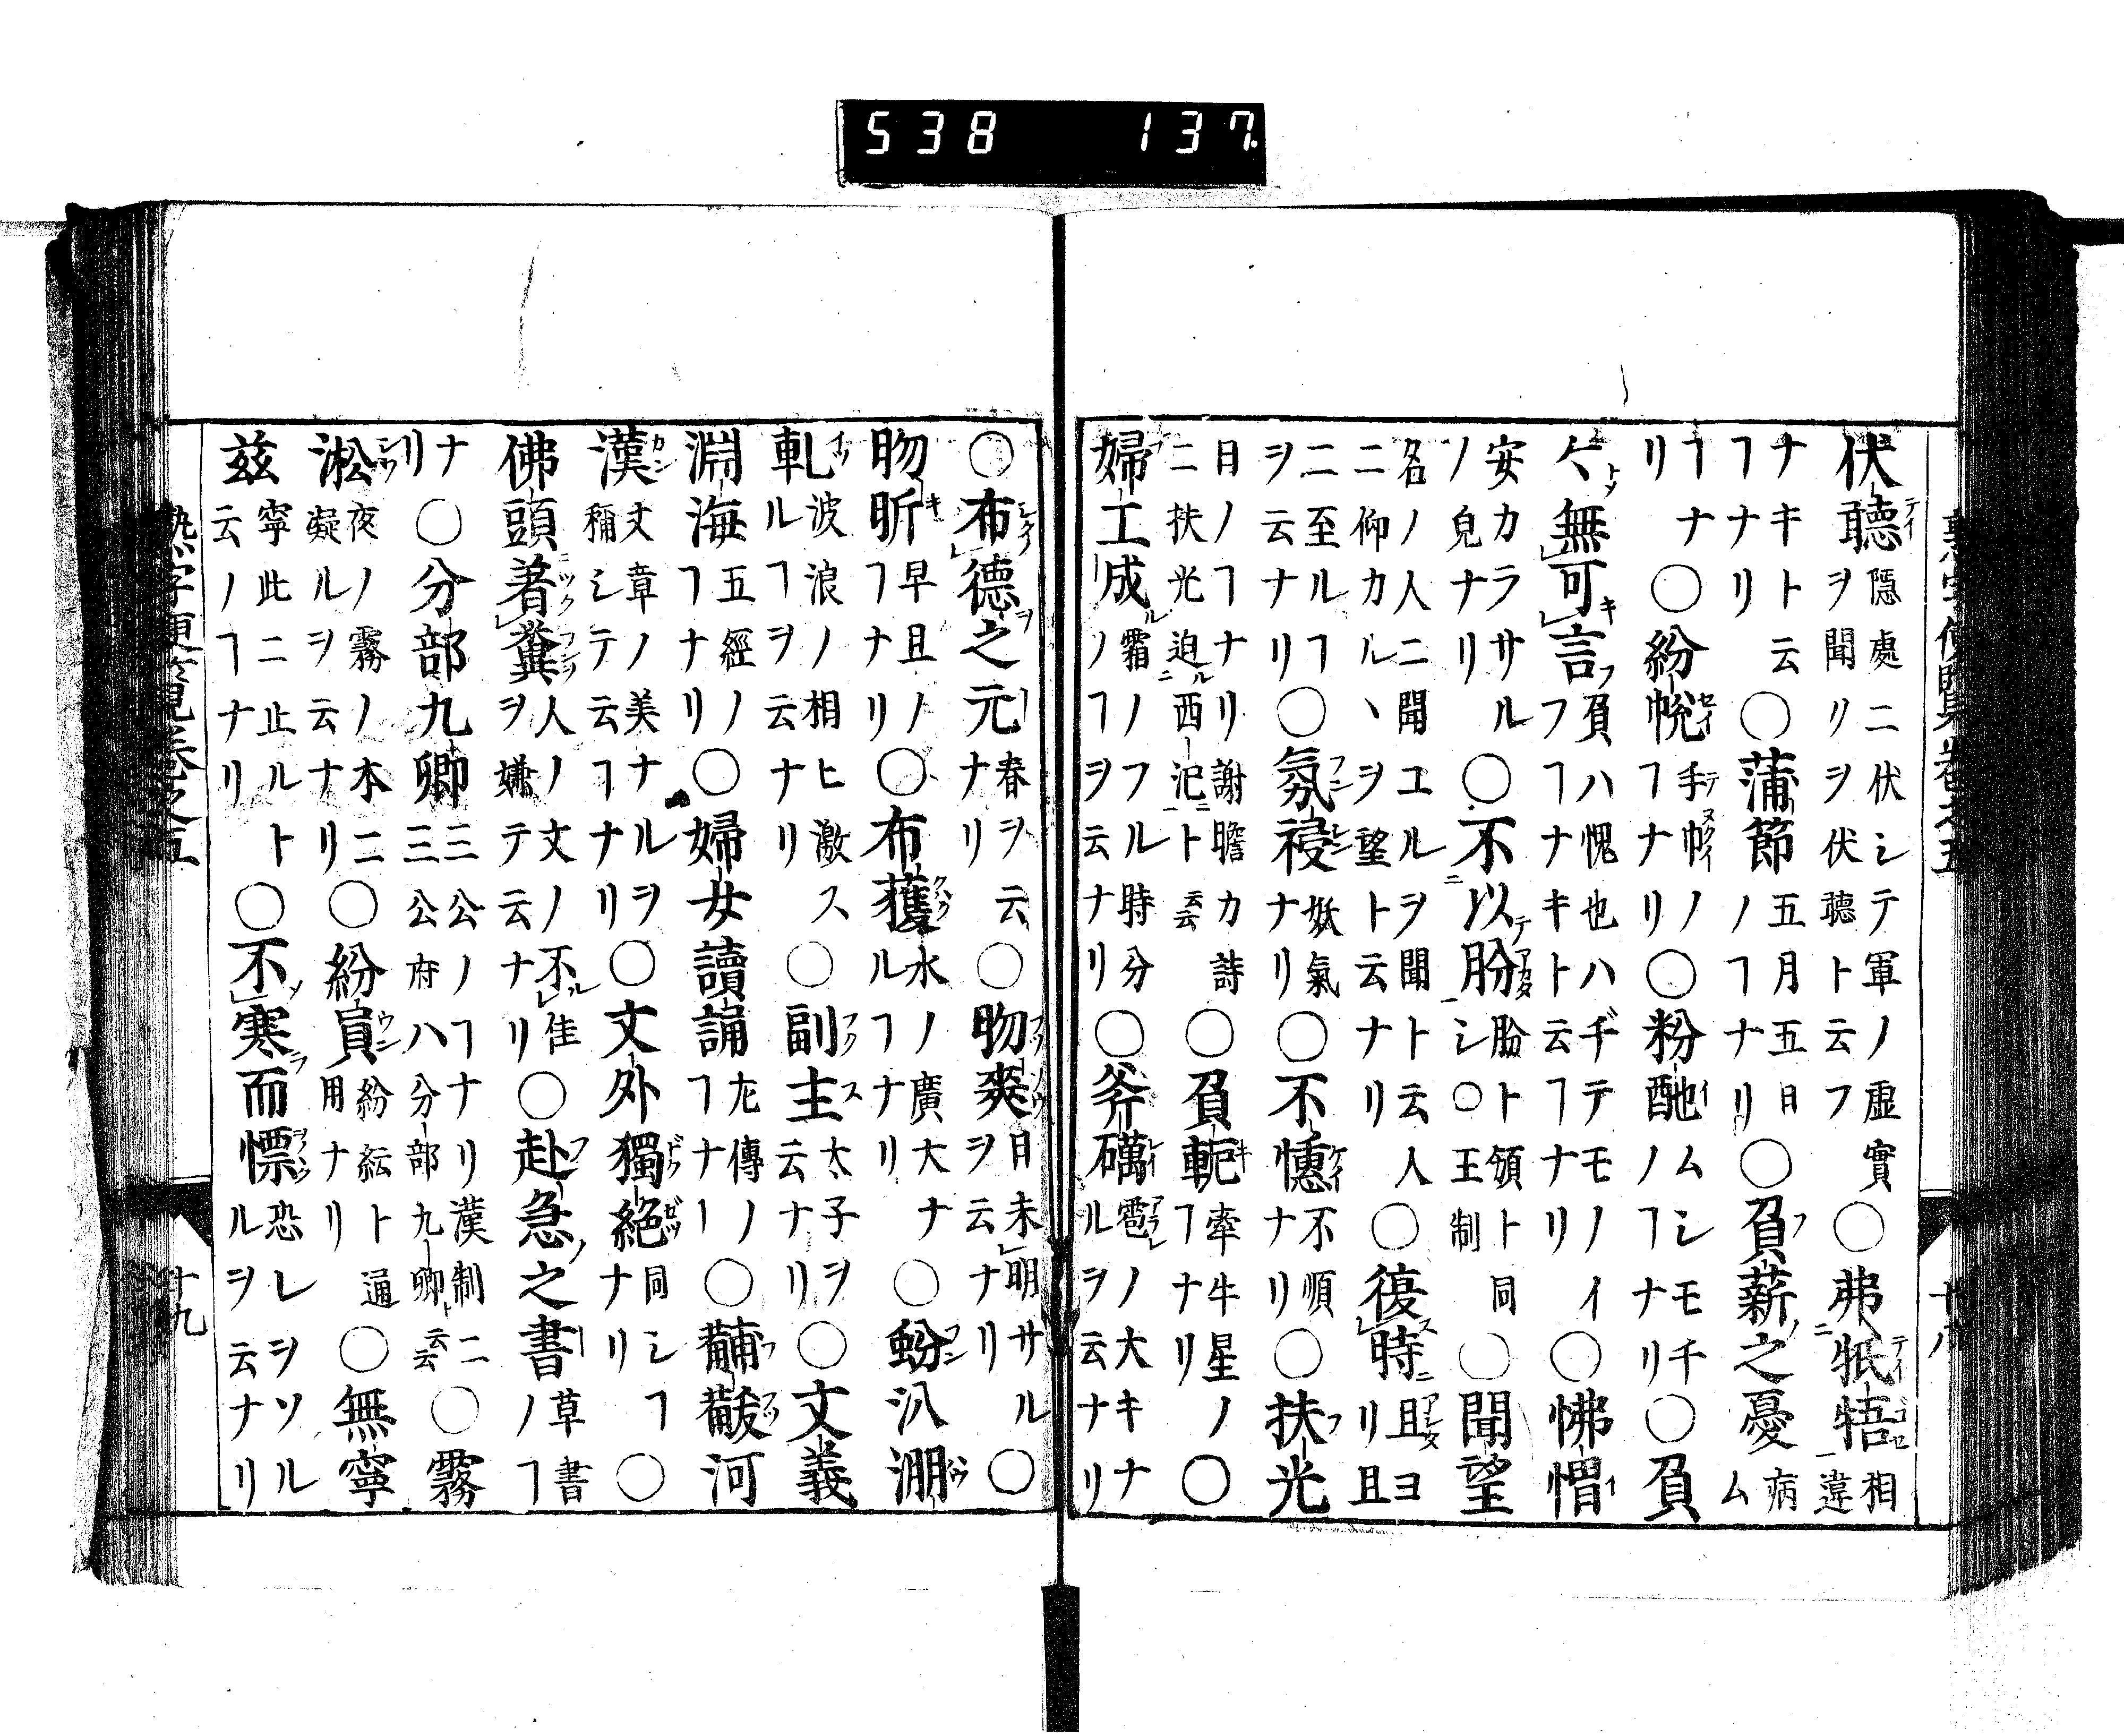 538 137
伏聽隠處ニ伏シテ軍ノ虚實ヲ聞リヲ伏聽ト云フ〇弗牴牾相違
ナキト云ヿナリ〇蒲節五月五日ノヿナリ〇負薪之憂病ム
ヿナリ〇紛帨手帨ノヿナリ〇粉酏ムシモチノヿナリ〇負
〱無可言負ハ愧也ハヂテモノイフヿナキト云ヿナリ〇怫㥜
安カラサルノ皃ナリ〇不以肦肦ト頒ト同シ〇王制〇聞望
名ノ人ニ聞エルヲ聞ト云人ニ仰カルヽヲ望ト云ナリ〇復時且ヨリ且
ニ至ルヿヲ云ナリ〇氛祲妖氣ナリ〇不憓不順ナリ〇扶光
日ノヿナリ謝瞻カ詩ニ扶光迫西汜ト云云〇負軛牽牛星ノヿナリ〇
婦工成霜ノフル時分ノヿヲ云ナリ〇斧礪雹ノ大キナルヲ云ナリ
熟字便覧巻之五 十八
〇布德之元春ヲ云ナリ〇昒爽日未明サルヲ云ナリ〇
昒昕早且ノヿナリ〇布濩水ノ廣大ナルヿナリ〇蚡汃淜
軋波浪ノ相ヒ激スルヿヲ云ナリ〇副主太子ヲ云ナリ〇文義
淵海五經ノヿナリ〇婦女讀誦左傳ノヿナリ〇黼黻河
漢文章ノ美ナルヲ稱シテ云ヿナリ〇文外獨絕同シヿナリ〇
佛頭著糞人ノ文ノ不佳ヲ嫌テ云ナリ〇赴急之書草書ノヿ
ナリ〇分部九卿三公ノヿナリ漢制ニ三公府ハ分部九卿云云〇霧
淞夜ノ霧ノ木ニ凝ルヲ云ナリ〇紛員紛紜ト通用ナリ〇無寧
茲寧此ニ止ルト云ノヿナリ〇不寒而慄恐レヲソルルヲ云ナリ
熟字便覧巻之五 十九